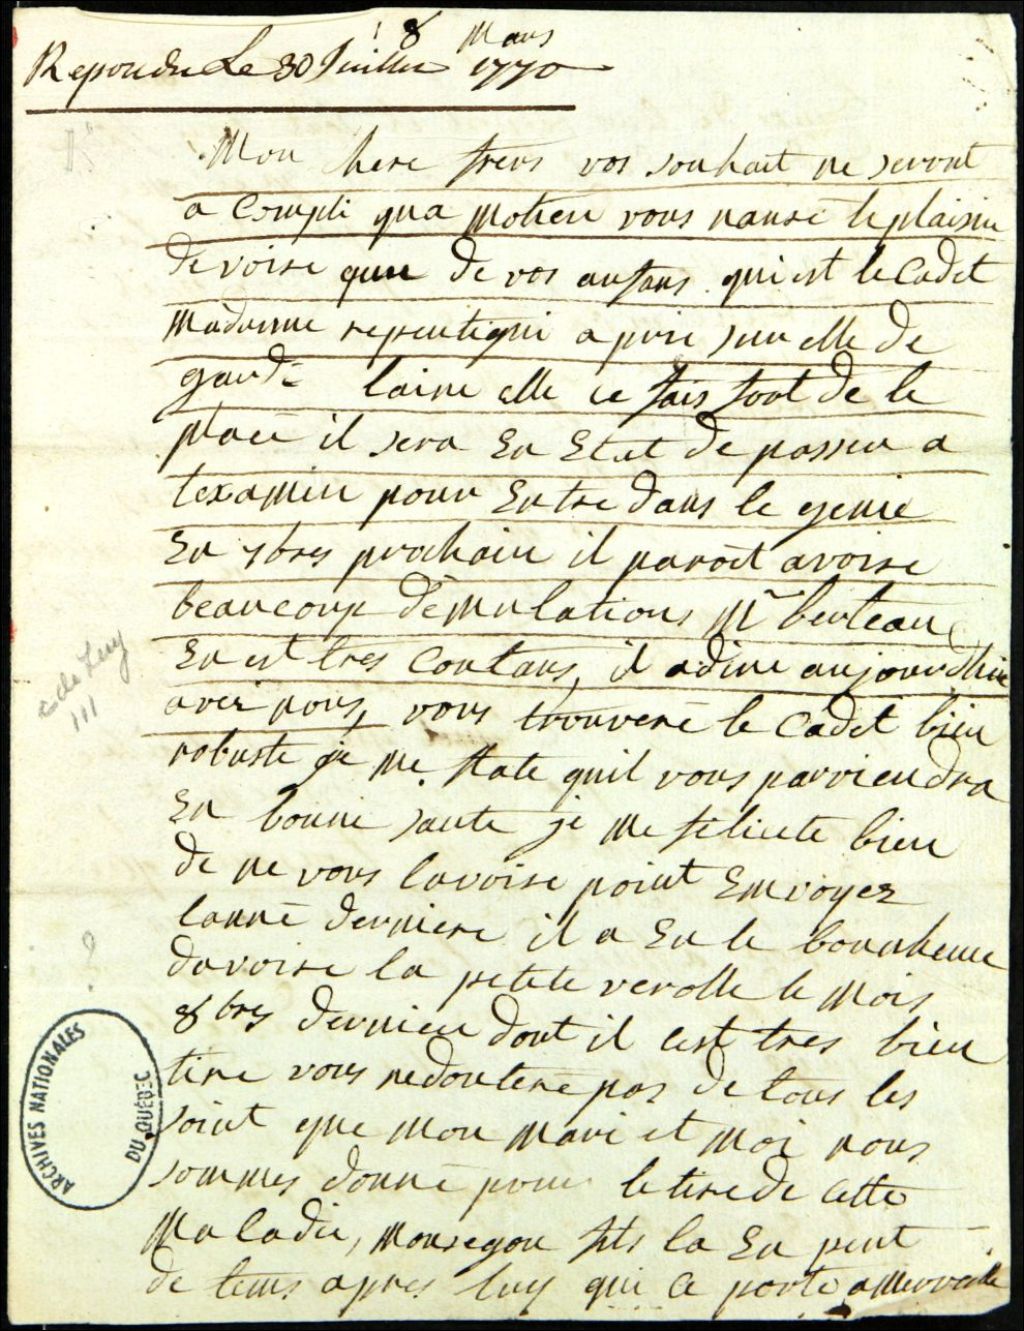 8 Mars
Repondu Le 30 Juillet 1770
Mon chere frere vos souhait ne seront
a Compli qua Motieu vous naure le plaisir
de voire que de vos anfans qui est le Cadet
Madamme repentigni a pris sur elle de
garde laine elle ce fais fort de le
place il sera En Etat de passer a
lexamin pour Entre dans le genie
En 7bres prochain il paroit avoire
beaucoup demulations Mr berteau
En est tres Contans, il a dine aujourdhui
avec nous, vous trouvere le Cadet bien
robuste je me flate quil vous parviendra
En bonne sante je me felicite bien
de ne vous lavoire point Envoyez
lanné derniere il a Eu le bonnheure
davoire la petite verolle le mois
8bres dernier dont il cest tres bien
tire vous ne doutere pas de tous les
soint que mon mari et moi nous
sommes donné pour le tire de cette
Maladie, mon segon fils la Eu peut
de tems apres luy qui ce porte a merveille
ARCHIVES NATIONALES
DU QUÉBEC
c de Lery
111
?